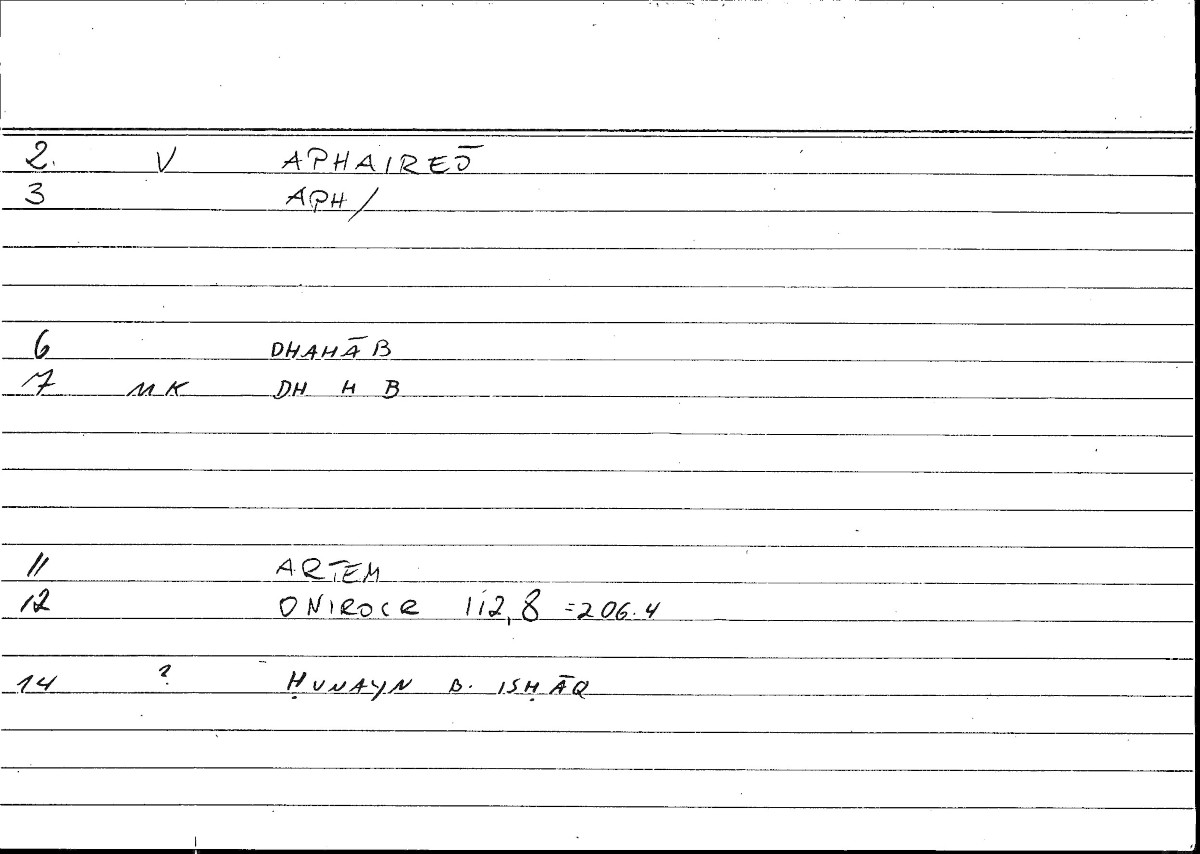 2. V APHAIREŌ
3 APH/
6 DHAHĀB
7 MK DH H B
11 ARTEM
12 ONIROCR 112,8 =206.4
14 ? ḤUNAYN B. ISḤĀQ